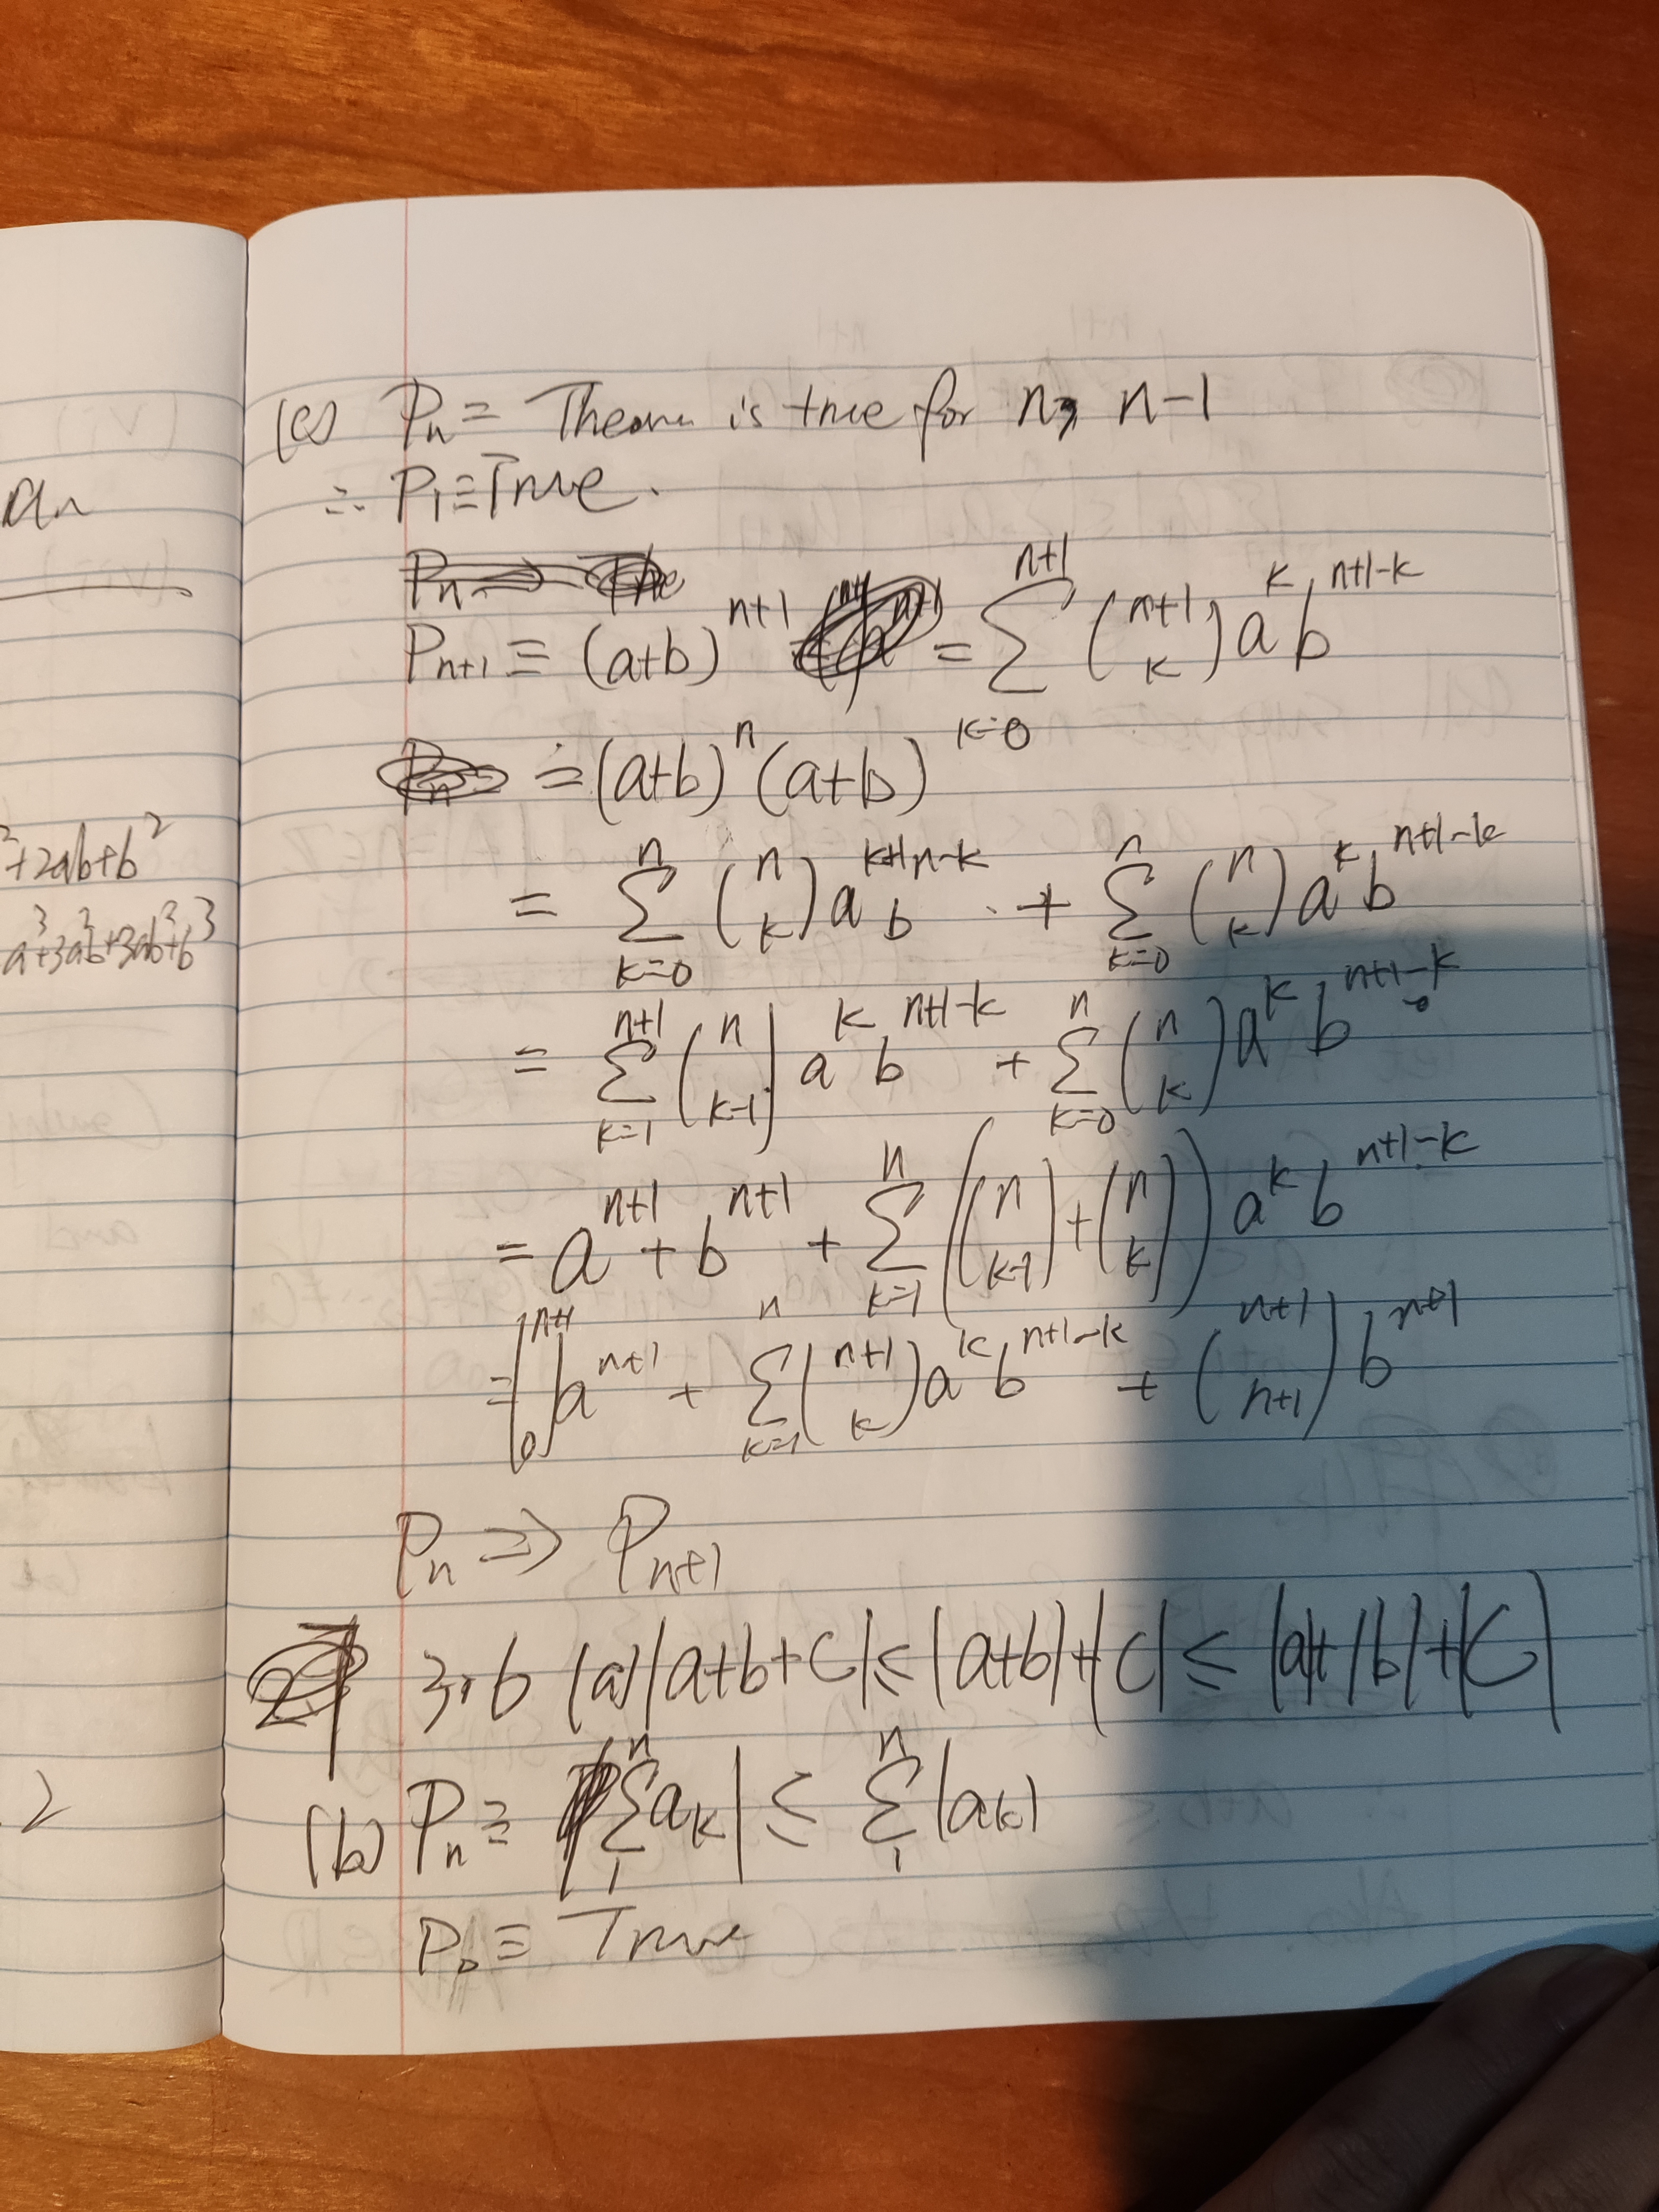 an
²+2ab+b²
a³+3a²b+3ab²+b³
2
(c) Pn = Theorem is true for n, n-1
∴ P₁ ≡ True.
Pn+1 ≡ (a+b)^(n+1) = Σ_(k=0)^(n+1) (n+1 k) a^k b^(n+1-k)
= (a+b)^n (a+b)
= Σ_(k=0)^n (n k) a^(k+1) b^(n-k) + Σ_(k=0)^n (n k) a^k b^(n+1-k)
= Σ_(k=1)^(n+1) (n k-1) a^k b^(n+1-k) + Σ_(k=0)^n (n k) a^k b^(n+1-k)
= a^(n+1) + b^(n+1) + Σ_(k=1)^n ((n k-1) + (n k)) a^k b^(n+1-k)
= (n+1 0) a^(n+1) + Σ_(k=1)^n (n+1 k) a^k b^(n+1-k) + (n+1 n+1) b^(n+1)
Pn ⇒ Pn+1
3.6 (a) |a+b+c| ≤ |a+b|+|c| ≤ |a|+|b|+|c|
(b) Pn ≡ |Σ_1^n a_k| ≤ Σ_1^n |a_k|
P₀ ≡ True